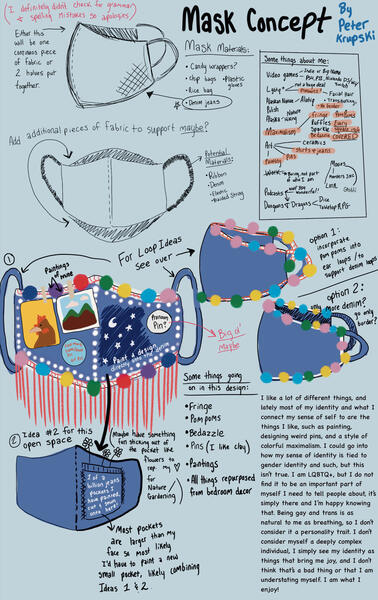 (I definitely didn't check for grammar
& spelling mistakes so apologies)
Mask Concept
By
Peter
Krupski
Either this
will be one
continuous piece
of fabric or
2 halves put
together.
Mask Materials:
• Candy wrappers?
• Chip bags
• Plastic gloves
• Rice bag
• Denim jeans
Some things about me:
Video games
Lgbtq
Facial hair
Alaskan Native
Polish
Nature
Fringe
PomPoms
Ruffles
Maximalism
Sparkle
Bedazzle
COVERED
Art
Ceramics
shirts & jeans
Painting
Pins
Work
Podcasts
Dungeons & Dragons
Dice
Add additional pieces of fabric to support maybe?
Potential
Materials:
• Ribbon
• Denim
• Elastic
• Braided String
①
For Loop Ideas
see over
option 1:
incorporate
pom poms into
ear loops / to
support denim loops
Paintings
of mine
Pronoun
Pin?
Paint a design
directly onto the denim
Big ol'
Maybe
option 2:
only more denim?
go only
border?
Some things going
on in this design:
• Fringe
• Pom poms
• Bedazzle
• Pins (I like clay)
• Paintings
• All things repurposed
from bedroom decor
② Idea #2 for this
open space
Maybe have something
fun sticking out of
the pocket like
flowers to
rep my
♥
for
Nature/
Gardening
1 of a
billion jeans
pockets I
have painted,
cut & sewn
onto here
Most pockets
are larger than my
face so most likely
I'd have to paint a new
small pocket, likely combining
Ideas 1 & 2
I like a lot of different things, and
lately most of my identity and what I
connect my sense of self to are the
things I like, such as painting,
designing weird pins, and a style of
colorful maximalism. I could go into
how my sense of identity is tied to
gender identity and such, but this
isn't true. I am LGBTQ+, but I do not
find it to be an important part of
myself I need to tell people about, it's
simply there and I'm happy knowing
that. Being gay and trans is as
natural to me as breathing, so I don't
consider it a personality trait. I don't
consider myself a deeply complex
individual, I simply see my identity as
things that bring me joy, and I don't
think that's a bad thing or that I am
understating myself. I am what I
enjoy!